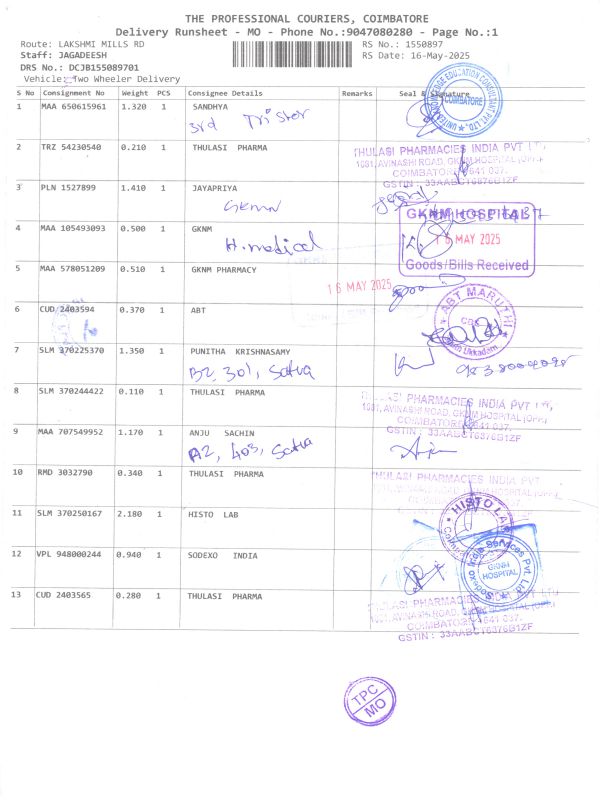 THE PROFESSIONAL COURIERS, COIMBATORE
Delivery Runsheet - MO - Phone No.:9047080280 - Page No.:1
Route: LAKSHMI MILLS RD
RS No.: 1550897
Staff: JAGADEESH
RS Date: 16-May-2025
DRS No.: DCJB155089701
Vehicle: Two Wheeler Delivery
S No Consignment No Weight PCS Consignee Details Remarks Seal & Signature
1 MAA 650615961 1.320 1 SANDHYA
3rd Tristor
COIMBATORE
2 TRZ 54230540 0.210 1 THULASI PHARMA
THULASI PHARMACIES INDIA PVT LTD
1081, AVINASHI ROAD, GKNM HOSPITAL (OPP),
COIMBATORE-641 037.
GSTIN : 33AABCT6376B1ZF
3 PLN 1527899 1.410 1 JAYAPRIYA
GKMN
4 MAA 105493093 0.500 1 GKNM
H.medical
GKNM HOSPITAL
16 MAY 2025
Goods/Bills Received
5 MAA 578051209 0.510 1 GKNM PHARMACY
16 MAY 2025
6 CUD 2403594 0.370 1 ABT
ABT MARUTHI
CBE
Ukkadam
7 SLM 370225370 1.350 1 PUNITHA KRISHNASAMY
B2, 301, Satva
8 SLM 370244422 0.110 1 THULASI PHARMA
THULASI PHARMACIES INDIA PVT LTD
1081, AVINASHI ROAD, GKNM HOSPITAL (OPP),
COIMBATORE-641 037.
GSTIN : 33AABCT6376B1ZF
9 MAA 707549952 1.170 1 ANJU SACHIN
A2, 403, Satva
10 RMD 3032790 0.340 1 THULASI PHARMA
THULASI PHARMACIES INDIA PVT
11 SLM 370250167 2.180 1 HISTO LAB
HISTO LAB
12 VPL 948000244 0.940 1 SODEXO INDIA
Sodexo India Services Pvt. Ltd.
GKNM
HOSPITAL
13 CUD 2403565 0.280 1 THULASI PHARMA
THULASI PHARMACIES INDIA PVT LTD
1081, AVINASHI ROAD, GKNM HOSPITAL (OPP),
COIMBATORE-641 037.
GSTIN : 33AABCT6376B1ZF
TPC
MO